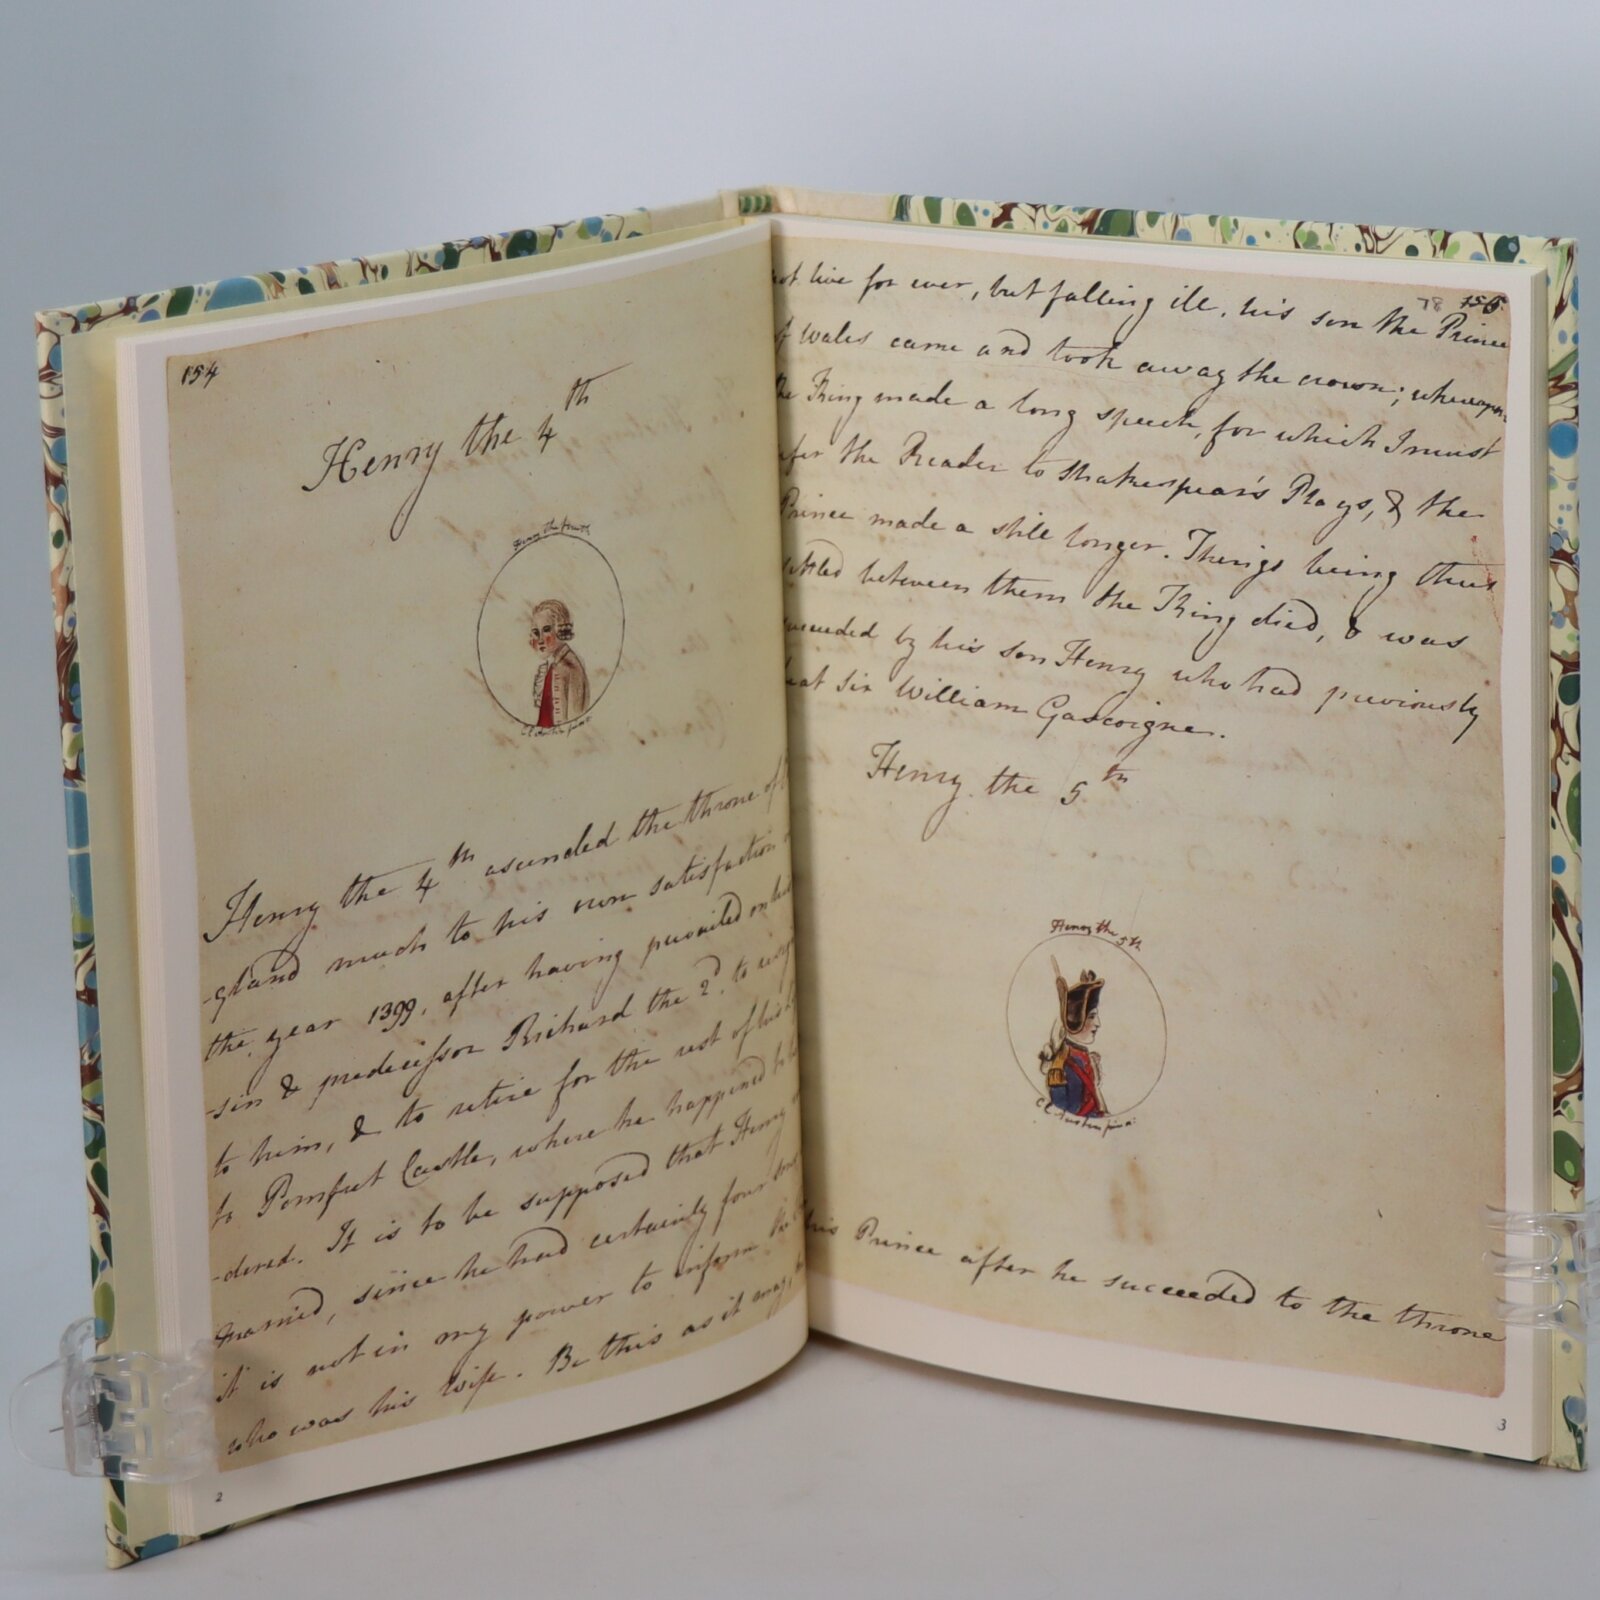 154
Henry the 4th
Henry the fourth
C E Austin pinx
Henry the 4th ascended the throne of
-gland much to his own satisfaction
the year 1399, after having prevailed on his
-sin & predecessor Richard the 2d. to
to him, & to retire for the rest of his
to Pomfret Castle, where he happened to be
-dered. It is to be supposed that Henry
married, since he had certainly four sons
it is not in my power to inform the
who was his Wife. Be this as it may,
2
78 155
not live for ever, but falling ill, his son the Prince
of Wales came and took away the crown; whereupon
the King made a long speech, for which I must
refer the Reader to Shakespear's Plays, & the
Prince made a still longer. Things being thus
settled between them the King died, & was
succeeded by his son Henry who had previously
beat Sir William Gascoigne.
Henry the 5th
Henry the 5th
C E Austin pinx
This Prince after he succeeded to the throne
3